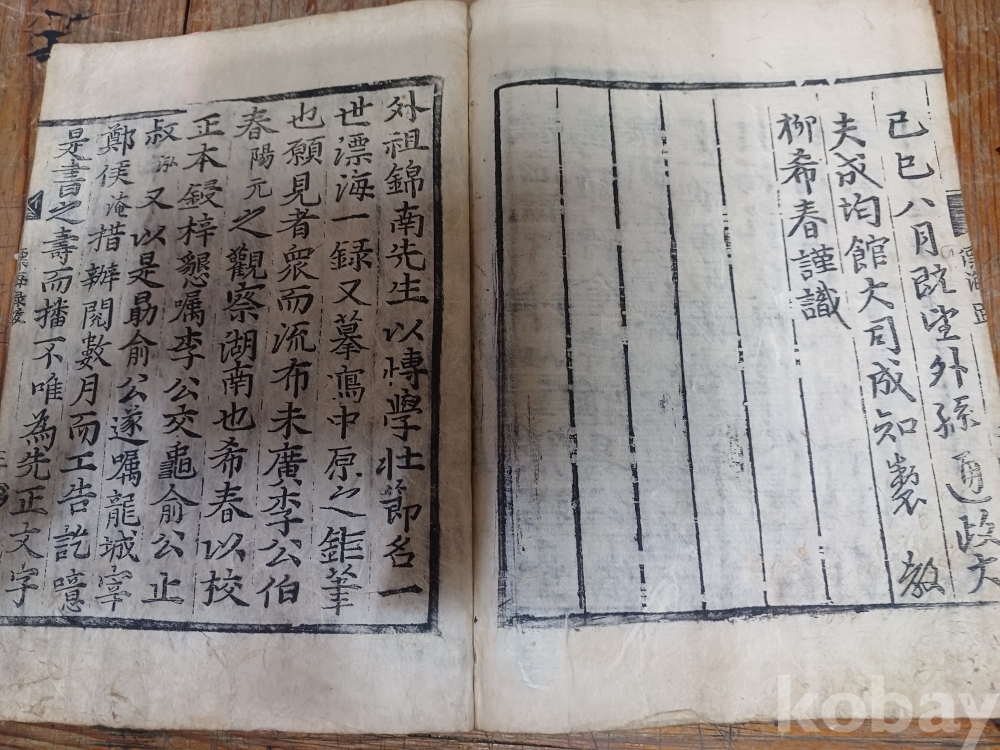 己巳八月旣望外孫通政大
夫成均館大司成知製 敎
柳希春謹識
外祖錦南先生以博學壯節名一
世漂海一録又摹寫中原之鉅筆
也願見者衆而流布未廣李公伯
春陽元之觀察湖南也希春以校
正本鋟梓懇嘱李公交龜俞公止
叔泓又以是勗俞公遂嘱龍城宰
鄭侯淹措辦閱數月而工告訖噫
是書之壽而播不唯為先正文字
kobay